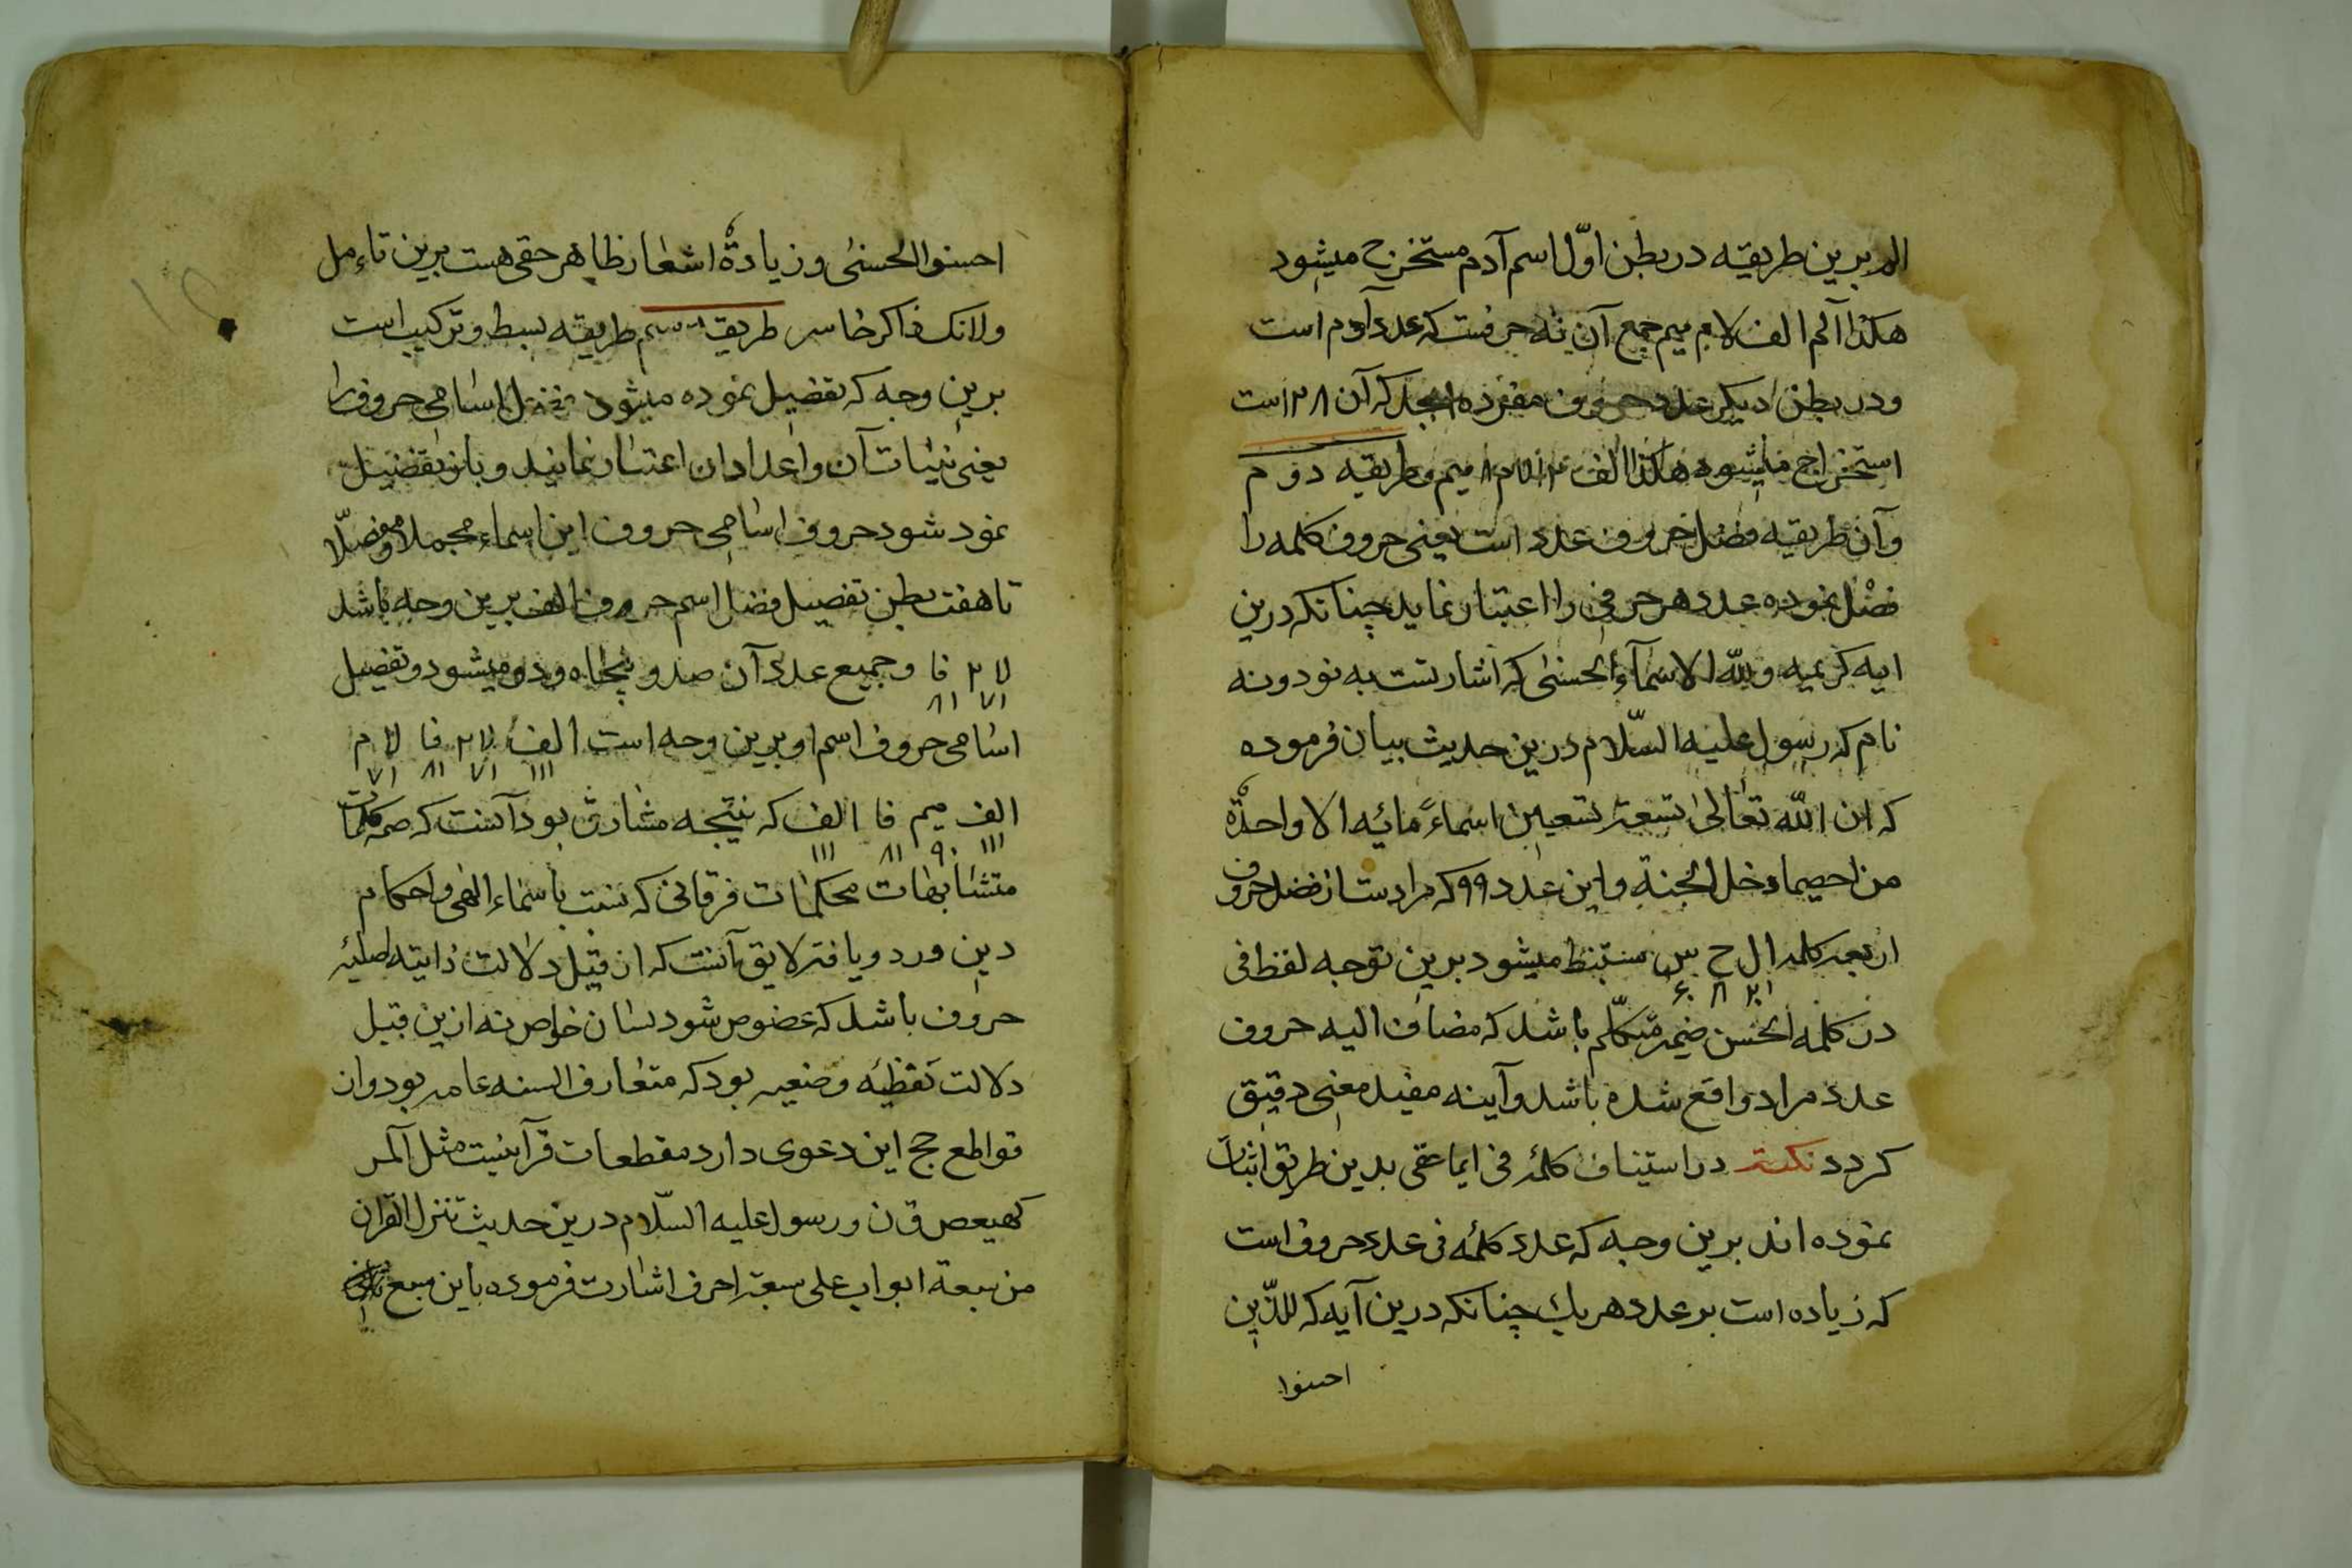 الم برین طریقه در بطن اوّل اسم آدم مستخرج میشود
هکذا آلم الف لام میم جمع آن نه حرفست که عدد آدم است
ودر بطن دیکر عدد حروف مفرده ابجد که آن ۲۸ است
استخراج میشود هکذا الف لام میم وطریقه دوم
وآن طریقه فصل حروف عدد است یعنی حروف کلمه را
فصل نموده عدد هر حرفی را اعتبار نماید چنانکه درین
ایه کریمه ولله الاسمآء الحسنی که اشارتست به نود ونه
نام که رسول علیه السّلام درین حدیث بیان فرموده
که ان الله تعالی تسعة تسعین اسماءً مائه الا واحدةً
من احصیها دخل الجنة واین عدد ۹۹ که مرادست از فضل حروف
اربعه کلمه ال ح س مستنبط میشود برین توجه لفظ فی
۱ ۳۰ ۸ ۶۰
در کلمه الحسن ضیمر متکلّم باشد که مضاف الیه حروف
عدد مراد واقع شده باشد وآینه مفید معنی دقیق
کردد نکته در استیناف کلمۀ فی ایما عقی بدین طریق اثبات
نموده اند برین وجه که عدد کلمۀ فی عدد حروف است
که زیاده است بر عدد هر یك چنانکه درین آیه که للذّین
احسنوا
احسنوا الحسنی وزیادةً اشعار ظاهر حقی هست برین تاءمل
ولا تک ذاکر خاسر طریقه سیم طریقه بسط وترکیب است
برین وجه که تفضیل نموده میشود فضل اسامی حروف را
یعنی بینات آن واعداد ان اعتبار نمایند وباز بتفضیل
نمود شود حروف اسامی حروف این اسماء مجملا ومفصّلا
تا هفت بطن تفصیل فضل اسم حروف الف برین وجه باشد
لام فا وجمیع عدد آن صد وپنجاه ودو میشود وتفضیل
۷۱ ۸۱
اسامی حروف اسم او برین وجه است الف لام فا لام
۱۱۱ ۷۱ ۸۱ ۷۱
الف میم فا الف که نتیجه مشارق بود آنست که صمه کلمات
۱۱۱ ۹۰ ۸۱ ۱۱۱
متشابهات محکمات فرقانی که نسبت باسماء الهی واحکام
دین ورد ویافته لایق آنست که از قبیل دلالت ذاتیه اصلیۀ
حروف باشد که مخضوص شود بسان خواص نه ازین قبیل
دلالت لفظیه وضعیه بود که متعارف السنه عامه بود وان
قواطع حجج این دعوی دارد مقطعات قرآنیت مثل آلمر
کهیعص ق ن ورسول علیه السّلام درین حدیث تنزل القران
من سبعة ابواب علی سبعة احرف اشارت فرموده باین سبع